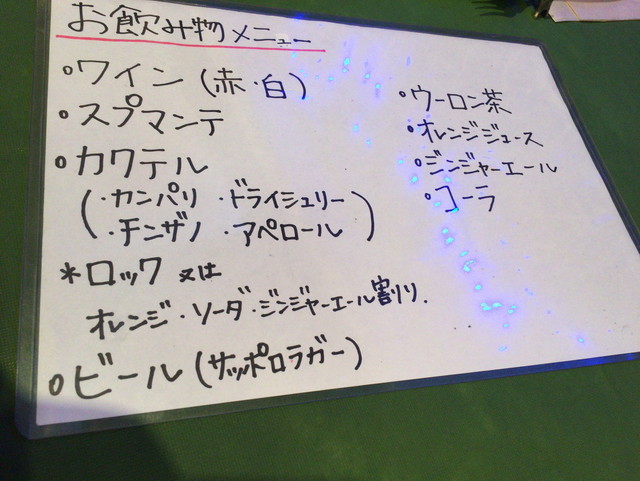 お飲み物メニュー
○ワイン（赤・白）
○スプマンテ
○カクテル
（・カンパリ ・ドライシェリー
・チンザノ ・アペロール）
＊ロック 又は
オレンジ・ソーダ・ジンジャーエール割り.
○ビール（サッポロラガー）
○ウーロン茶
○オレンジジュース
○ジンジャーエール
○コーラ